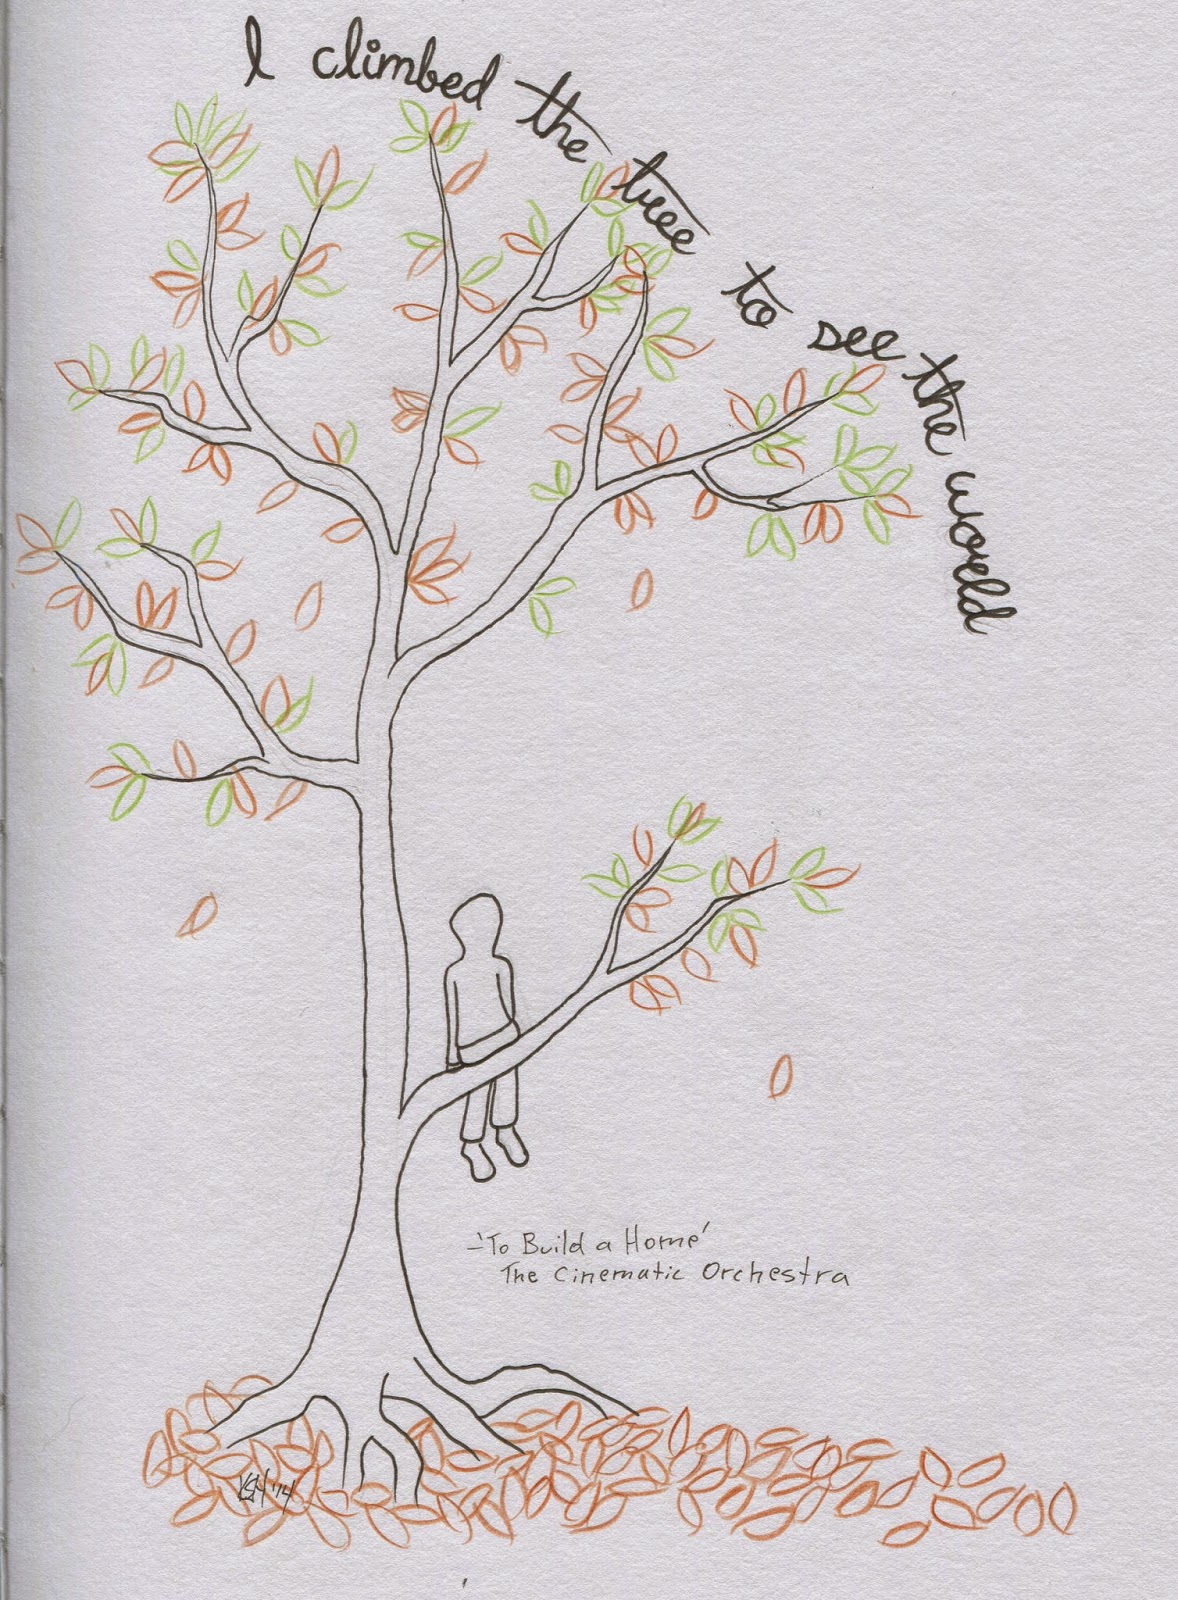 I climbed the tree to see the world
-'To Build a Home'
The Cinematic Orchestra
KSH '14